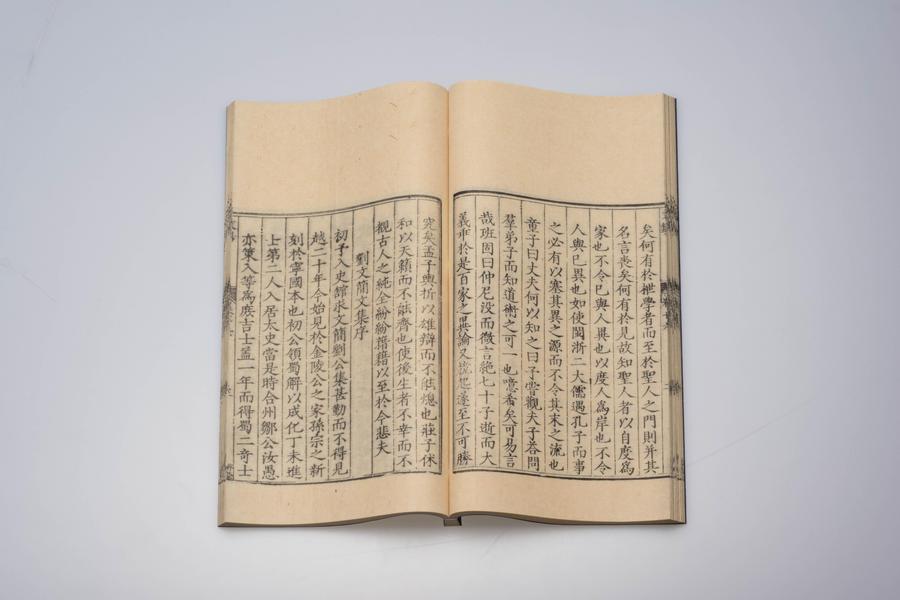 矣何有於世學者而至於聖人之門則并其
名言喪矣何有於見故知聖人者以自度爲
家也不令已與人異也以度人爲岸也不令
人與已異也如使閩浙二大儒遇孔子而事
之必有以塞其異之源而不令其末之流也
童子曰丈夫何以知之曰子嘗觀夫子荅問
羣弟子而知道術之可一也噫希矣可易言
哉班固曰仲尼没而微言絶七十子逝而大
義乖於是百家之異論又競起遂至不可勝
究矣孟子輿折以雄辯而不能熄也莊子休
和以天籟而不能齊也使後生者不幸而不
覩古人之純全紛紛藉藉以至於今悲夫
劉文簡文集序
初予入史館求文簡劉公集甚勤而不得見
越二十年今始見於金陵公之家孫宗之新
刻於寧國本也初公領蜀解以成化丁未進
士第二人入居太史當是時合州鄒公汝愚
亦策入等爲庶吉士葢一年而得蜀二奇士